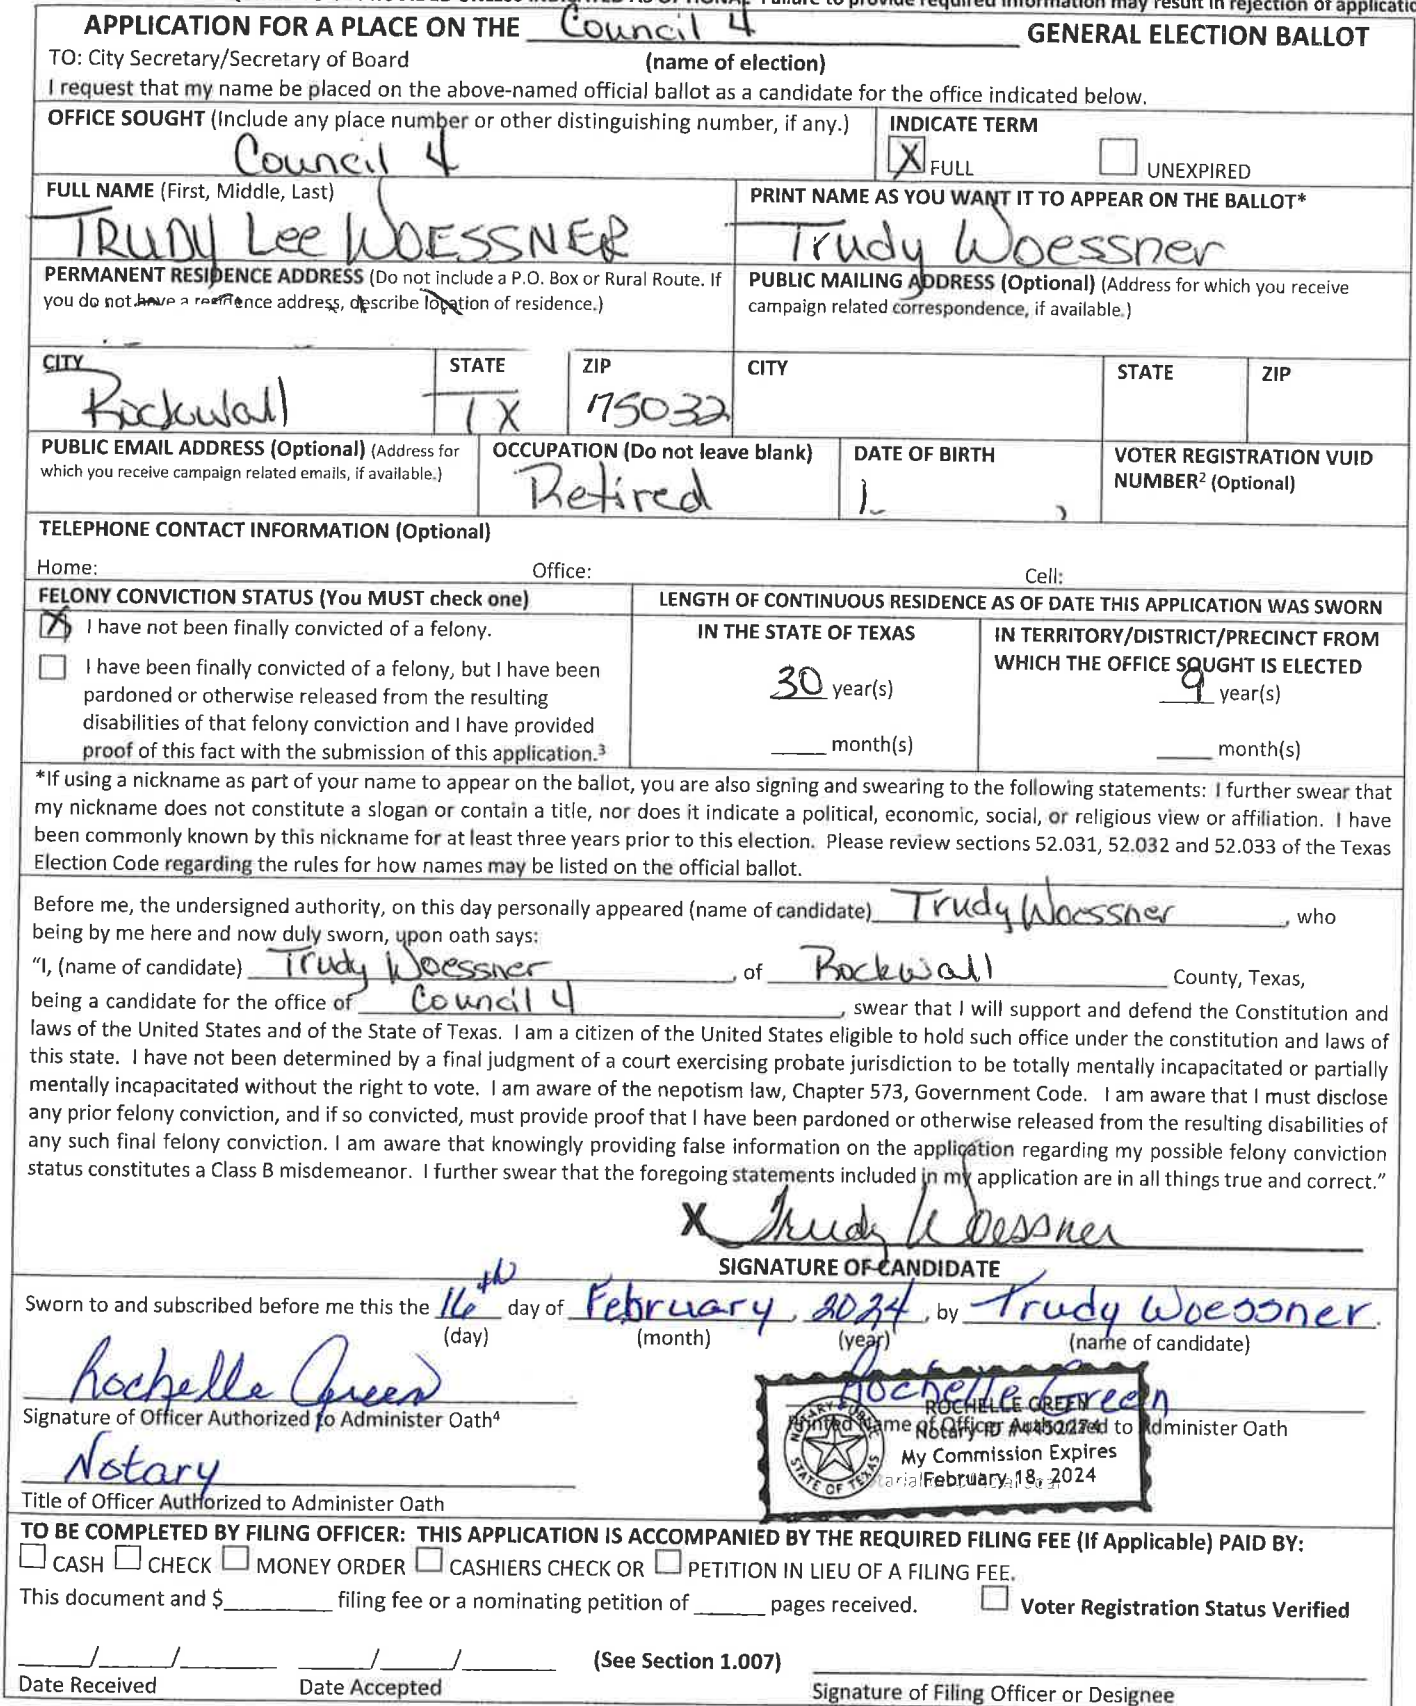 APPLICATION FOR A PLACE ON THE Council 4 GENERAL ELECTION BALLOT
TO: City Secretary/Secretary of Board (name of election)
I request that my name be placed on the above-named official ballot as a candidate for the office indicated below.
OFFICE SOUGHT (Include any place number or other distinguishing number, if any.)
Council 4
INDICATE TERM
X FULL UNEXPIRED
FULL NAME (First, Middle, Last)
TRUDY Lee WOESSNER
PRINT NAME AS YOU WANT IT TO APPEAR ON THE BALLOT*
Trudy Woessner
PERMANENT RESIDENCE ADDRESS (Do not include a P.O. Box or Rural Route. If
you do not have a residence address, describe location of residence.)
PUBLIC MAILING ADDRESS (Optional) (Address for which you receive
campaign related correspondence, if available.)
CITY
Rockwall
STATE
TX
ZIP
75032
CITY
STATE
ZIP
PUBLIC EMAIL ADDRESS (Optional) (Address for
which you receive campaign related emails, if available.)
OCCUPATION (Do not leave blank)
Retired
DATE OF BIRTH
VOTER REGISTRATION VUID
NUMBER² (Optional)
TELEPHONE CONTACT INFORMATION (Optional)
Home: Office: Cell:
FELONY CONVICTION STATUS (You MUST check one)
X I have not been finally convicted of a felony.
I have been finally convicted of a felony, but I have been
pardoned or otherwise released from the resulting
disabilities of that felony conviction and I have provided
proof of this fact with the submission of this application.³
LENGTH OF CONTINUOUS RESIDENCE AS OF DATE THIS APPLICATION WAS SWORN
IN THE STATE OF TEXAS
30 year(s)
month(s)
IN TERRITORY/DISTRICT/PRECINCT FROM
WHICH THE OFFICE SOUGHT IS ELECTED
9 year(s)
month(s)
*If using a nickname as part of your name to appear on the ballot, you are also signing and swearing to the following statements: I further swear that
my nickname does not constitute a slogan or contain a title, nor does it indicate a political, economic, social, or religious view or affiliation. I have
been commonly known by this nickname for at least three years prior to this election. Please review sections 52.031, 52.032 and 52.033 of the Texas
Election Code regarding the rules for how names may be listed on the official ballot.
Before me, the undersigned authority, on this day personally appeared (name of candidate) Trudy Woessner, who
being by me here and now duly sworn, upon oath says:
"I, (name of candidate) Trudy Woessner, of Rockwall County, Texas,
being a candidate for the office of Council 4, swear that I will support and defend the Constitution and
laws of the United States and of the State of Texas. I am a citizen of the United States eligible to hold such office under the constitution and laws of
this state. I have not been determined by a final judgment of a court exercising probate jurisdiction to be totally mentally incapacitated or partially
mentally incapacitated without the right to vote. I am aware of the nepotism law, Chapter 573, Government Code. I am aware that I must disclose
any prior felony conviction, and if so convicted, must provide proof that I have been pardoned or otherwise released from the resulting disabilities of
any such final felony conviction. I am aware that knowingly providing false information on the application regarding my possible felony conviction
status constitutes a Class B misdemeanor. I further swear that the foregoing statements included in my application are in all things true and correct."
X Trudy Woessner
SIGNATURE OF CANDIDATE
Sworn to and subscribed before me this the 16th day of February, 2024, by Trudy Woessner.
(day) (month) (year) (name of candidate)
Rochelle Green
Signature of Officer Authorized to Administer Oath⁴
Rochelle Green
Printed Name of Officer Authorized to Administer Oath
ROCHELLE GREEN
Notary ID #4452274
My Commission Expires
February 18, 2024
NOTARY PUBLIC
STATE OF TEXAS
Notary
Title of Officer Authorized to Administer Oath
TO BE COMPLETED BY FILING OFFICER: THIS APPLICATION IS ACCOMPANIED BY THE REQUIRED FILING FEE (If Applicable) PAID BY:
CASH CHECK MONEY ORDER CASHIERS CHECK OR PETITION IN LIEU OF A FILING FEE.
This document and $ filing fee or a nominating petition of pages received. Voter Registration Status Verified
(See Section 1.007)
Date Received Date Accepted Signature of Filing Officer or Designee